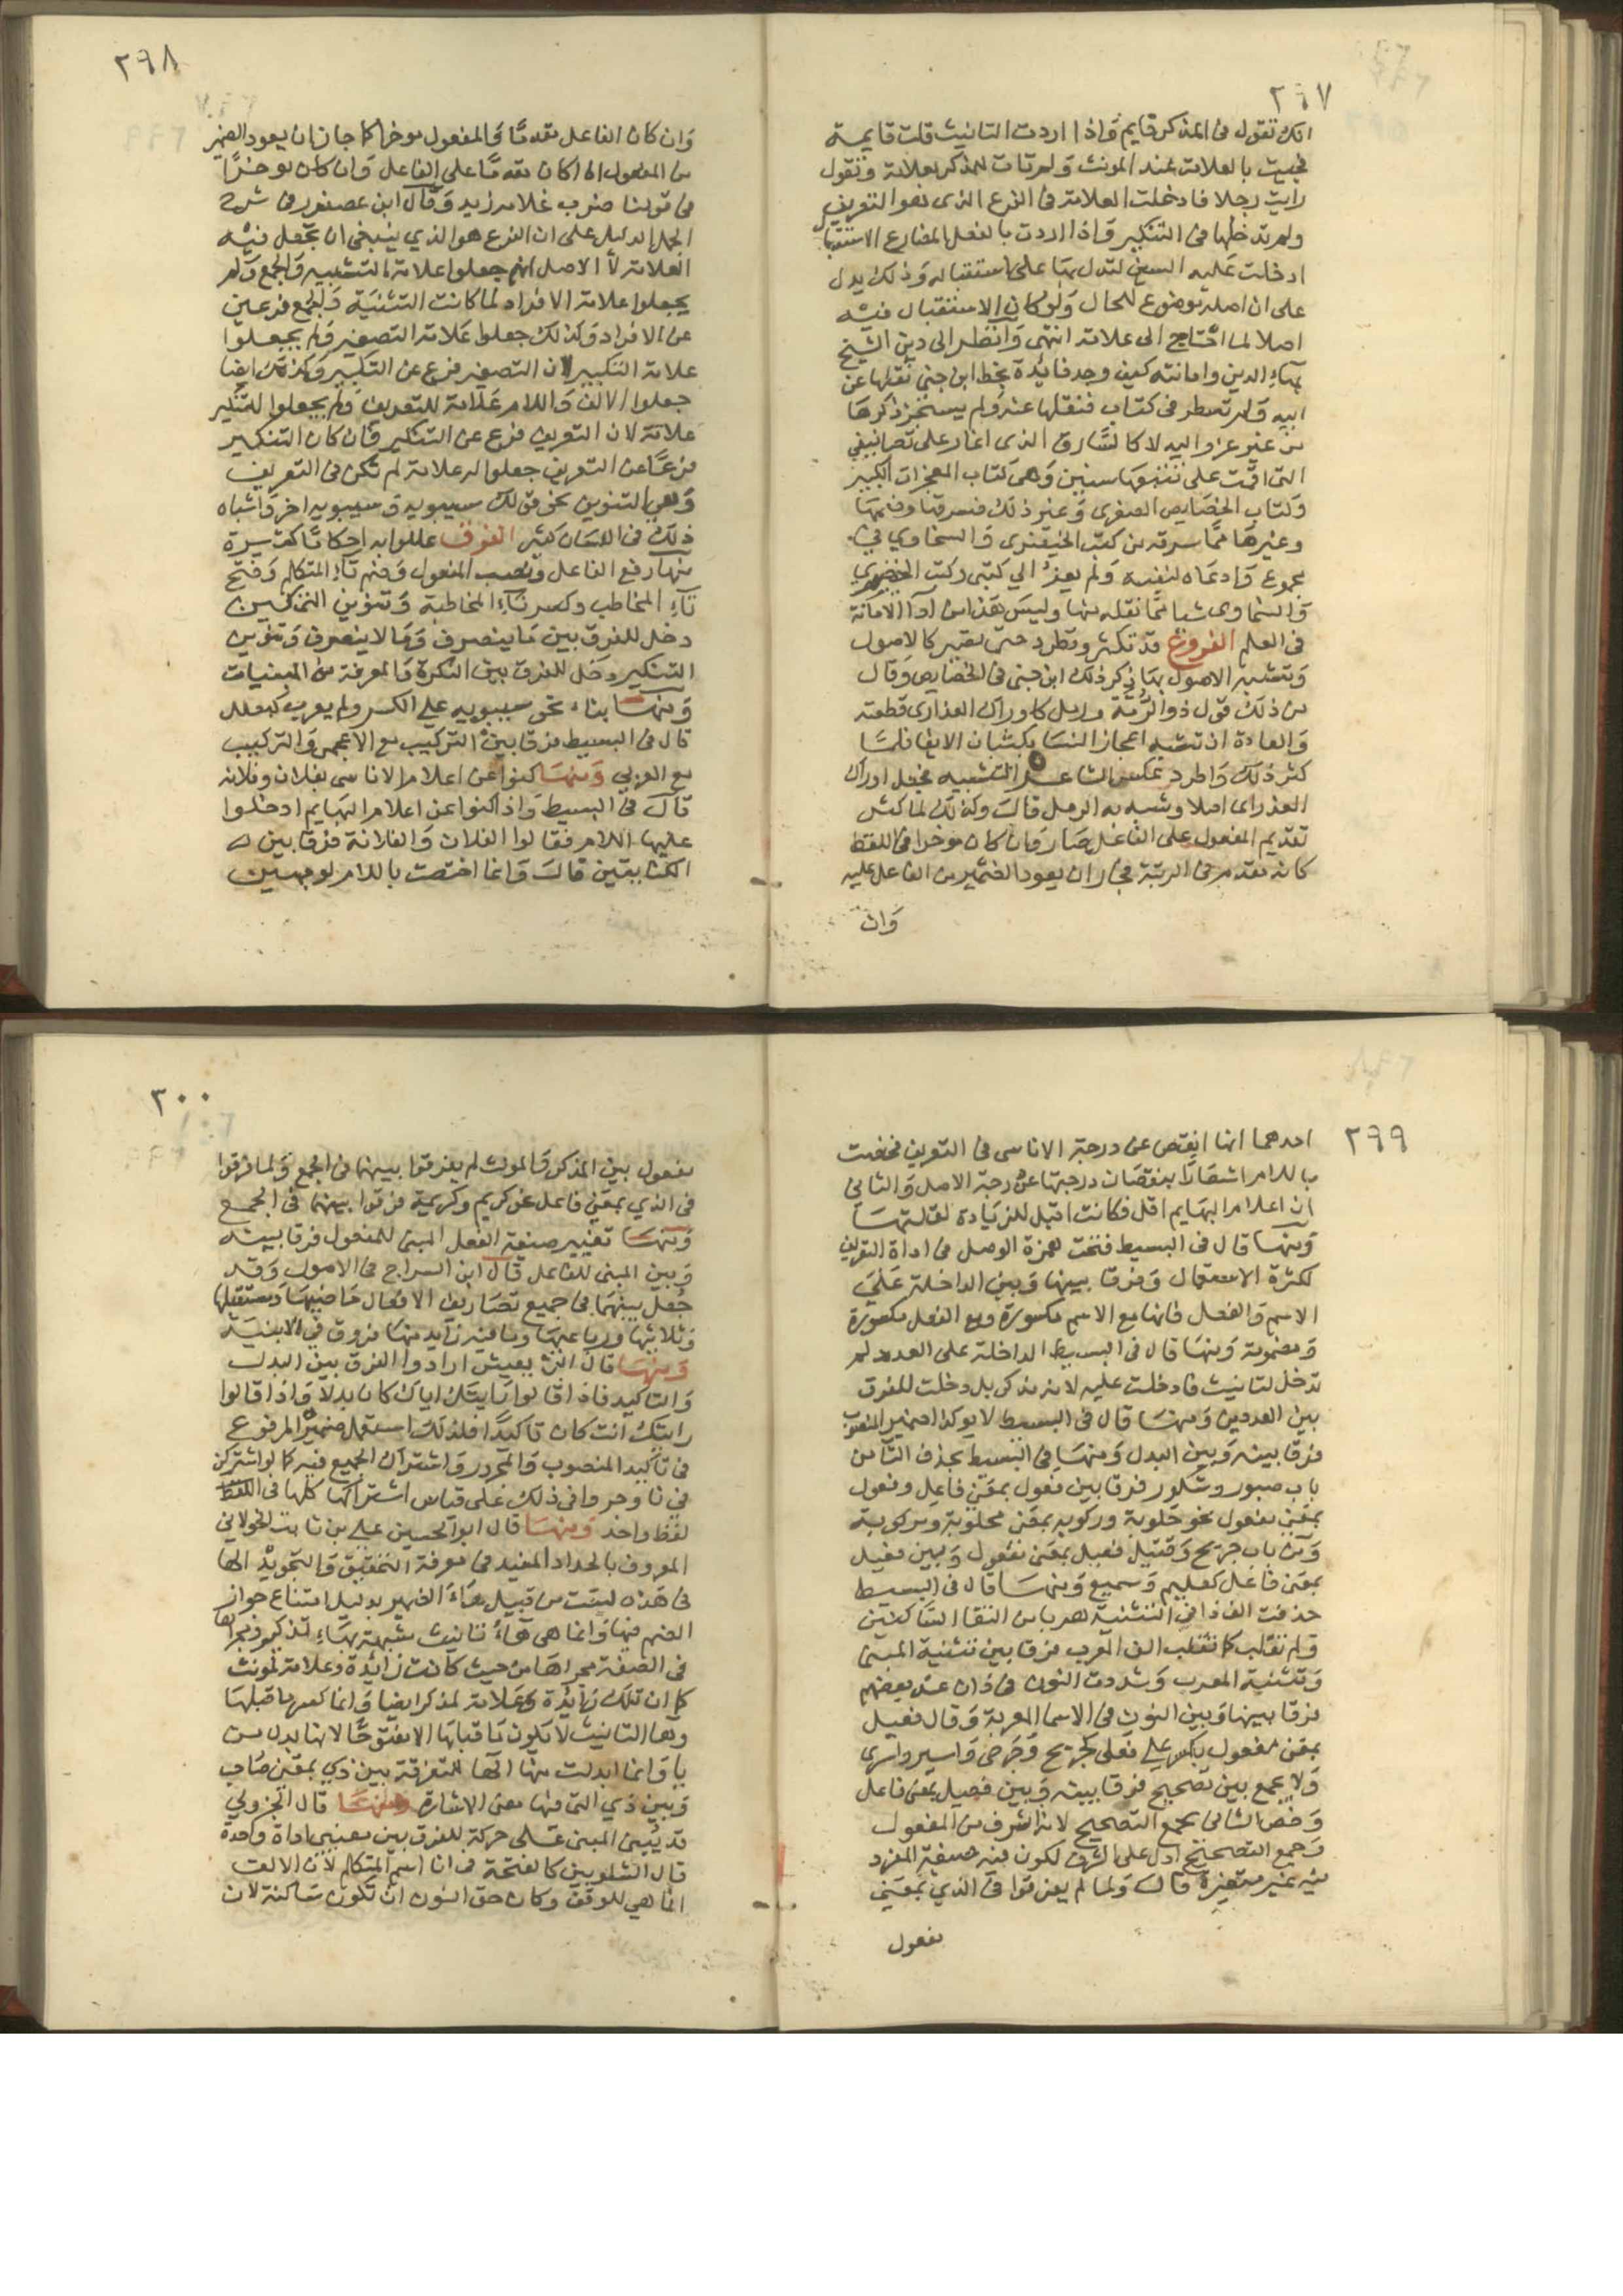 ٢٩٧
انك تقول فى المذكر قايم وَاذا اردت التانيث قلت قايمة
فجيت بالعلامة عند المونث وَلم تات للمذكر بعلامة وتقول
رايت رجلا فادخلت العلامة فى الفرع الذى هو التعريف
ولم تدخلها فى التنكير وَاذا اردت بالفعل المضارع الاستقبال
ادخلت عَليه السين لتدل بها على استقباله وَذلك يدل
على ان اصله موضوع للحال وَلو كان الاستقبال فيه
اصلا لما احتاج الى علامة انتهى وَانظر الى دين الشيخ
بهاء الدين وامانته كيف وجد فايدة بخط ابن جنى نقلها عن
ابيه وَلم تسطر فى كتاب فنقلها عنه وَلم يستجز ذكرهَا
من غير عزو اليه لا كالسَّارق الذى اغار على تصانيفي
التى اقمت على تتبعهَا سنين وَهى كتاب المعجزات الكبير
وَكتاب الخصَايص الصغرى وَغير ذلك فسرقها وضمهَا
وغيرهَا ممَّا سرقه من كتب الخيضرى وَالسخاوي في
مجموع وَادعَاه لنفسه وَلم يعز الي كتبى وكتب الخيضري
وَالسخاوى شيا ممَّا نقله منها وليسَ هَذا من آدا الامَانة
فى العلم الفروع قد تكثر وتطرد حتى تصير كالاصول
وَتشبه الاصول بهَا ذكر ذلك ابن جنى فى الخصايص وَقال
من ذلك قول ذو الرُّمَّة ورمل كاوراك العذارى قطعته
وَالعادة ان تشبه اعجاز النسَا بكثبان الانقا فلمَّا
كثر ذلك وَاطرد عكس الشاعر التشبيه فجعل اوراك
العذراى اصلا وشبه به الرمل قالَ وكذلك لما كثر
تقديم المفعول على الفاعل صَار وَان كان موخرا فى اللفظ
كانه مقدم فى الرتبة فجاز ان يعود الضمير من الفاعل عليه
وَان
٢٩٨
وَان كان الفاعل مقدمًا وَالمفعول موخرا كما جاز ان يعود الضمير
من المفعول اذا كان مقدمًا على الفاعل وَان كان موخرًا
فى قولنا ضرب غلامه زيد وَقال ابن عصفور فى شرح
الجمل الدليل على ان الفرع هو الذي ينبغى ان تجعل فيه
العلامة لا الاصل انهم جعلوا علامة للتثنيه وَالجمع وَلم
يجعلوا علامة الافراد لما كانت التثنيَة وَالجمع فرعين
عن الافراد وَكذلك جعلوا عَلامة التصغير وَلم يجعلوا
علامة التكبير لان التصغير فرع عن التكبير وَكذلك ايضا
جعلوا الالف وَاللام عَلامة للتعريف وَلم يجعلوا للتنكير
علامة لان التعريف فرع عن التنكير وَان كان التنكير
فرعًا عن التعريف جعلوا له علامة لم تكن فى التعريف
وَهى التنوين نحو قولك سيبويه وَسيبويه اخر وَاشباه
ذلك فى اللسَان كثير الفرق عللوا به احكامًا كثيرة
منها رفع الفاعل ونصب المفعول وَضم تاءِ المتكلم وَفتح
تآءِ المخاطب وكسر تآءِ المخاطبة وَتنوين التمكين
دخل للفرق بين مَا ينصرف وَمَا لا ينصرف وَتنوين
التنكير دخل للفرق بين النكرة وَالمعرفة من المبنيات
وَمنهَا بناء نحو سيبويه علي الكسر ولم يعرب كبعلبك
قال فى البسيط فرقا بين التركيب مع الاعجمى وَالتركيب
مع العربي وَمنهَا كنوا عن اعلام الاناسى بفلان وفلانه
قال فى البسيط وَاذا كنوا عن اعلام البهَايم ادخلوا
عليها اللام فقالوا الفلان وَالفلانة فرقا بين
الكنايتين قالَ وَانما اختصت باللام لوجهين
٢٩٩
احدهما انها انقص عن درجة الاناسى فى التعريف فخصت
باللام اشعَارًا بنقصَان درجتهَا عن درجة الاصل وَالثانى
ان اعلام البهَايم اقل فكانت اقبل للزيَادة لقلتهَا
وَمنها قال فى البسيط فتحت همزة الوصل فى اداة التعريف
لكثرة الاستعمال وَفرقا بينها وَبين الداخلة عَلى
الاسم وَالفعل فانها مع الاسم مكسورة ومع الفعل مكسورة
وَمضمومة وَمنهَا قال فى البسيط الداخلة على العدد لم
تدخل لتانيث مَا دخلت عليه لانه مذكر بل دخلت للفرق
بين العددين وَمنهَا قال فى البسيط لا يوكد الضمير المنصوب
فرقا بينه وَبين البدل وَمنهَا فى البسيط بحذف التآ من
باب صبور وشكور فرقا بين فعول بمعَنى فاعِل وفعول
بمعَنى مفعول نحو حَلوبة وركوبه بمعَنى محلوبة ومركوبة
وَمن باب جريح وَقتيل فعيل بمعَنى مفعول وَبين فعيل
بمعَنى فاعل كعليم وَسميع وَمنهَا قال فى البسيط
حذفت الف ذا فى التثنية هربا من التقا السَّاكنين
وَلم تقلب كما تنقلب الف المعرب فرقا بين تثنية المبنى
وَتثنية المعرب وَشددت النون فى ذان عند بعضهم
فرقا بينها وَبين النون فى الاسما المعربة وَقال فعيل
بمعَنى مفعول يكسر علي فعلى كجريح وَجَرحى وَاسير واسرى
وَلا يجمع بين تصحيح فرقا بينه وَبين فعيل بمعنى فاعل
وَخص الثانى بجمع التصحيح لانه اشرف من المفعول
وَجمع التصحيح ادل على الشرف لكون فيه صيغة المفرد
فيه غير متغيرة قالَ وَلما لم يفرقوا فى الذي بمعَنى
مفعول
٣٠٠
مفعول بين المذكر وَالمونث لم يفرقوا بينهما فى الجمع وَلما فرقوا
فى الذي بمعَنى فاعل نحو كريم وكريمة فرقوا بينهما فى الجمع
وَمنهَا تغيير صيغة الفعل المبنى للمفعول فرقا بينه
وَبين المبنى للفاعل قال ابن السراج فى الاصول وَقد
جُعل بينهما فى جميع تصَاريف الافعال مَاضيهَا وَمستقبلها
وَثلاثيهَا ورباعيهَا وَما فيه زايد منهَا فروق في الابنية
وَمنهَا قال ابن يعيش ارادوا الفرق بين البدل
وَالتاكيد فاذا قالوا رَايتك اياك كان بدلا وَاذا قالوا
رايتك انت كان تاكيدًا فلذلك استعمل ضمير المرفوع
فى تاكيد المنصوب وَالمجرور وَاشتراك الجميع فيه كما لو اشتركن
في نا وجروا فى ذلك على قياس اشتراكهَا كلهَا فى اللفظ
لفظ واحد وَمنهَا قال ابو الحسين علي بن ثابت الخولاني
المعروف بالحداد المفيد فى معرفة التحقيق وَالتجويد الها
فى هَذه ليست من قبيل هَاءَ الضمير بدليل امتناع جواز
الضم فيها وَانما هى هَاءُ تانيث مشبهة بهَاءِ تذكير ومجراها
فى الصفة مجراهَا من حيث كانت زايدة وعلامة لمونث
كما ان تلك زايدة وَعلامة لمذكر ايضا وَانما كسر ما قبلهَا
وهَا التانيث لا يكون مَا قبلها الا مفتوحًا لانها بدل من
يا وَانما ابدلت منها الهَا للتفرقة بين ذي بمعَنى صَاحب
وَبين ذي التى فيها معنى الاشارة وَمنهَا قال الجزولي
قد يُبنى المبنى عَلى حركة للفرق بين معنيى اداة وَاحدة
قال الشلوبين كالفتحة فى انا اسم المتكلم لان الالف
انما هي للوقف وكان حق النون ان تكون سَاكنة لان